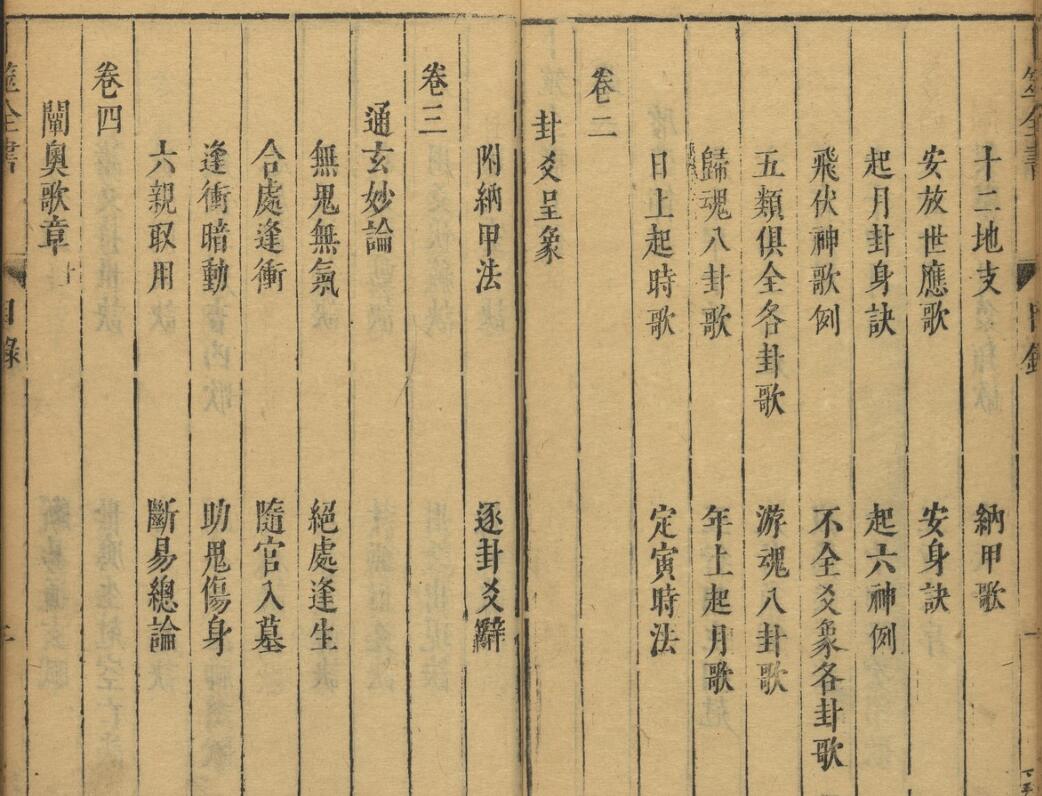 十二地支 納甲歌
安放世應歌 安身訣
起月卦身訣 起六神例
飛伏神歌例 不全爻象各卦歌
五類俱全各卦歌 游魂八卦歌
歸魂八卦歌 年上起月歌
日上起時歌 定寅時法
卷二
卦爻呈象
附納甲法 逐卦爻辭
卷三
通玄妙論
無鬼無氣 絕處逢生
合處逢衝 隨官入墓
逢衝暗動 助鬼傷身
六親取用 斷易總論
卷四
闡奧歌章
筮全書 目錄